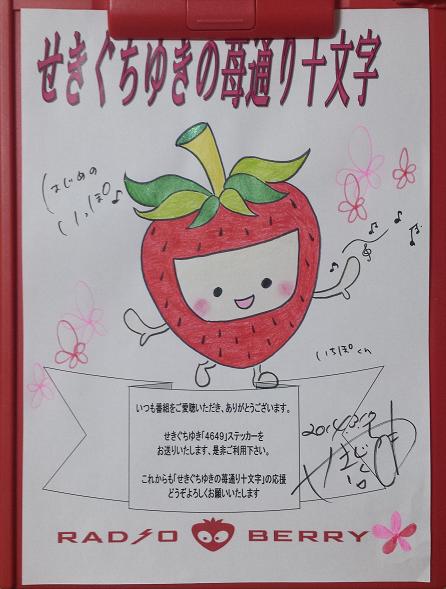 せきぐちゆきの苺通り十文字
はじめの
いっぽ♪
いちぽくん
いつも番組をご愛聴いただき、ありがとうございます。
せきぐちゆき「4649」ステッカーを
お送りいたします、是非ご利用下さい。
これからも「せきぐちゆきの苺通り十文字」の応援
どうぞよろしくお願いいたします
RADIO BERRY